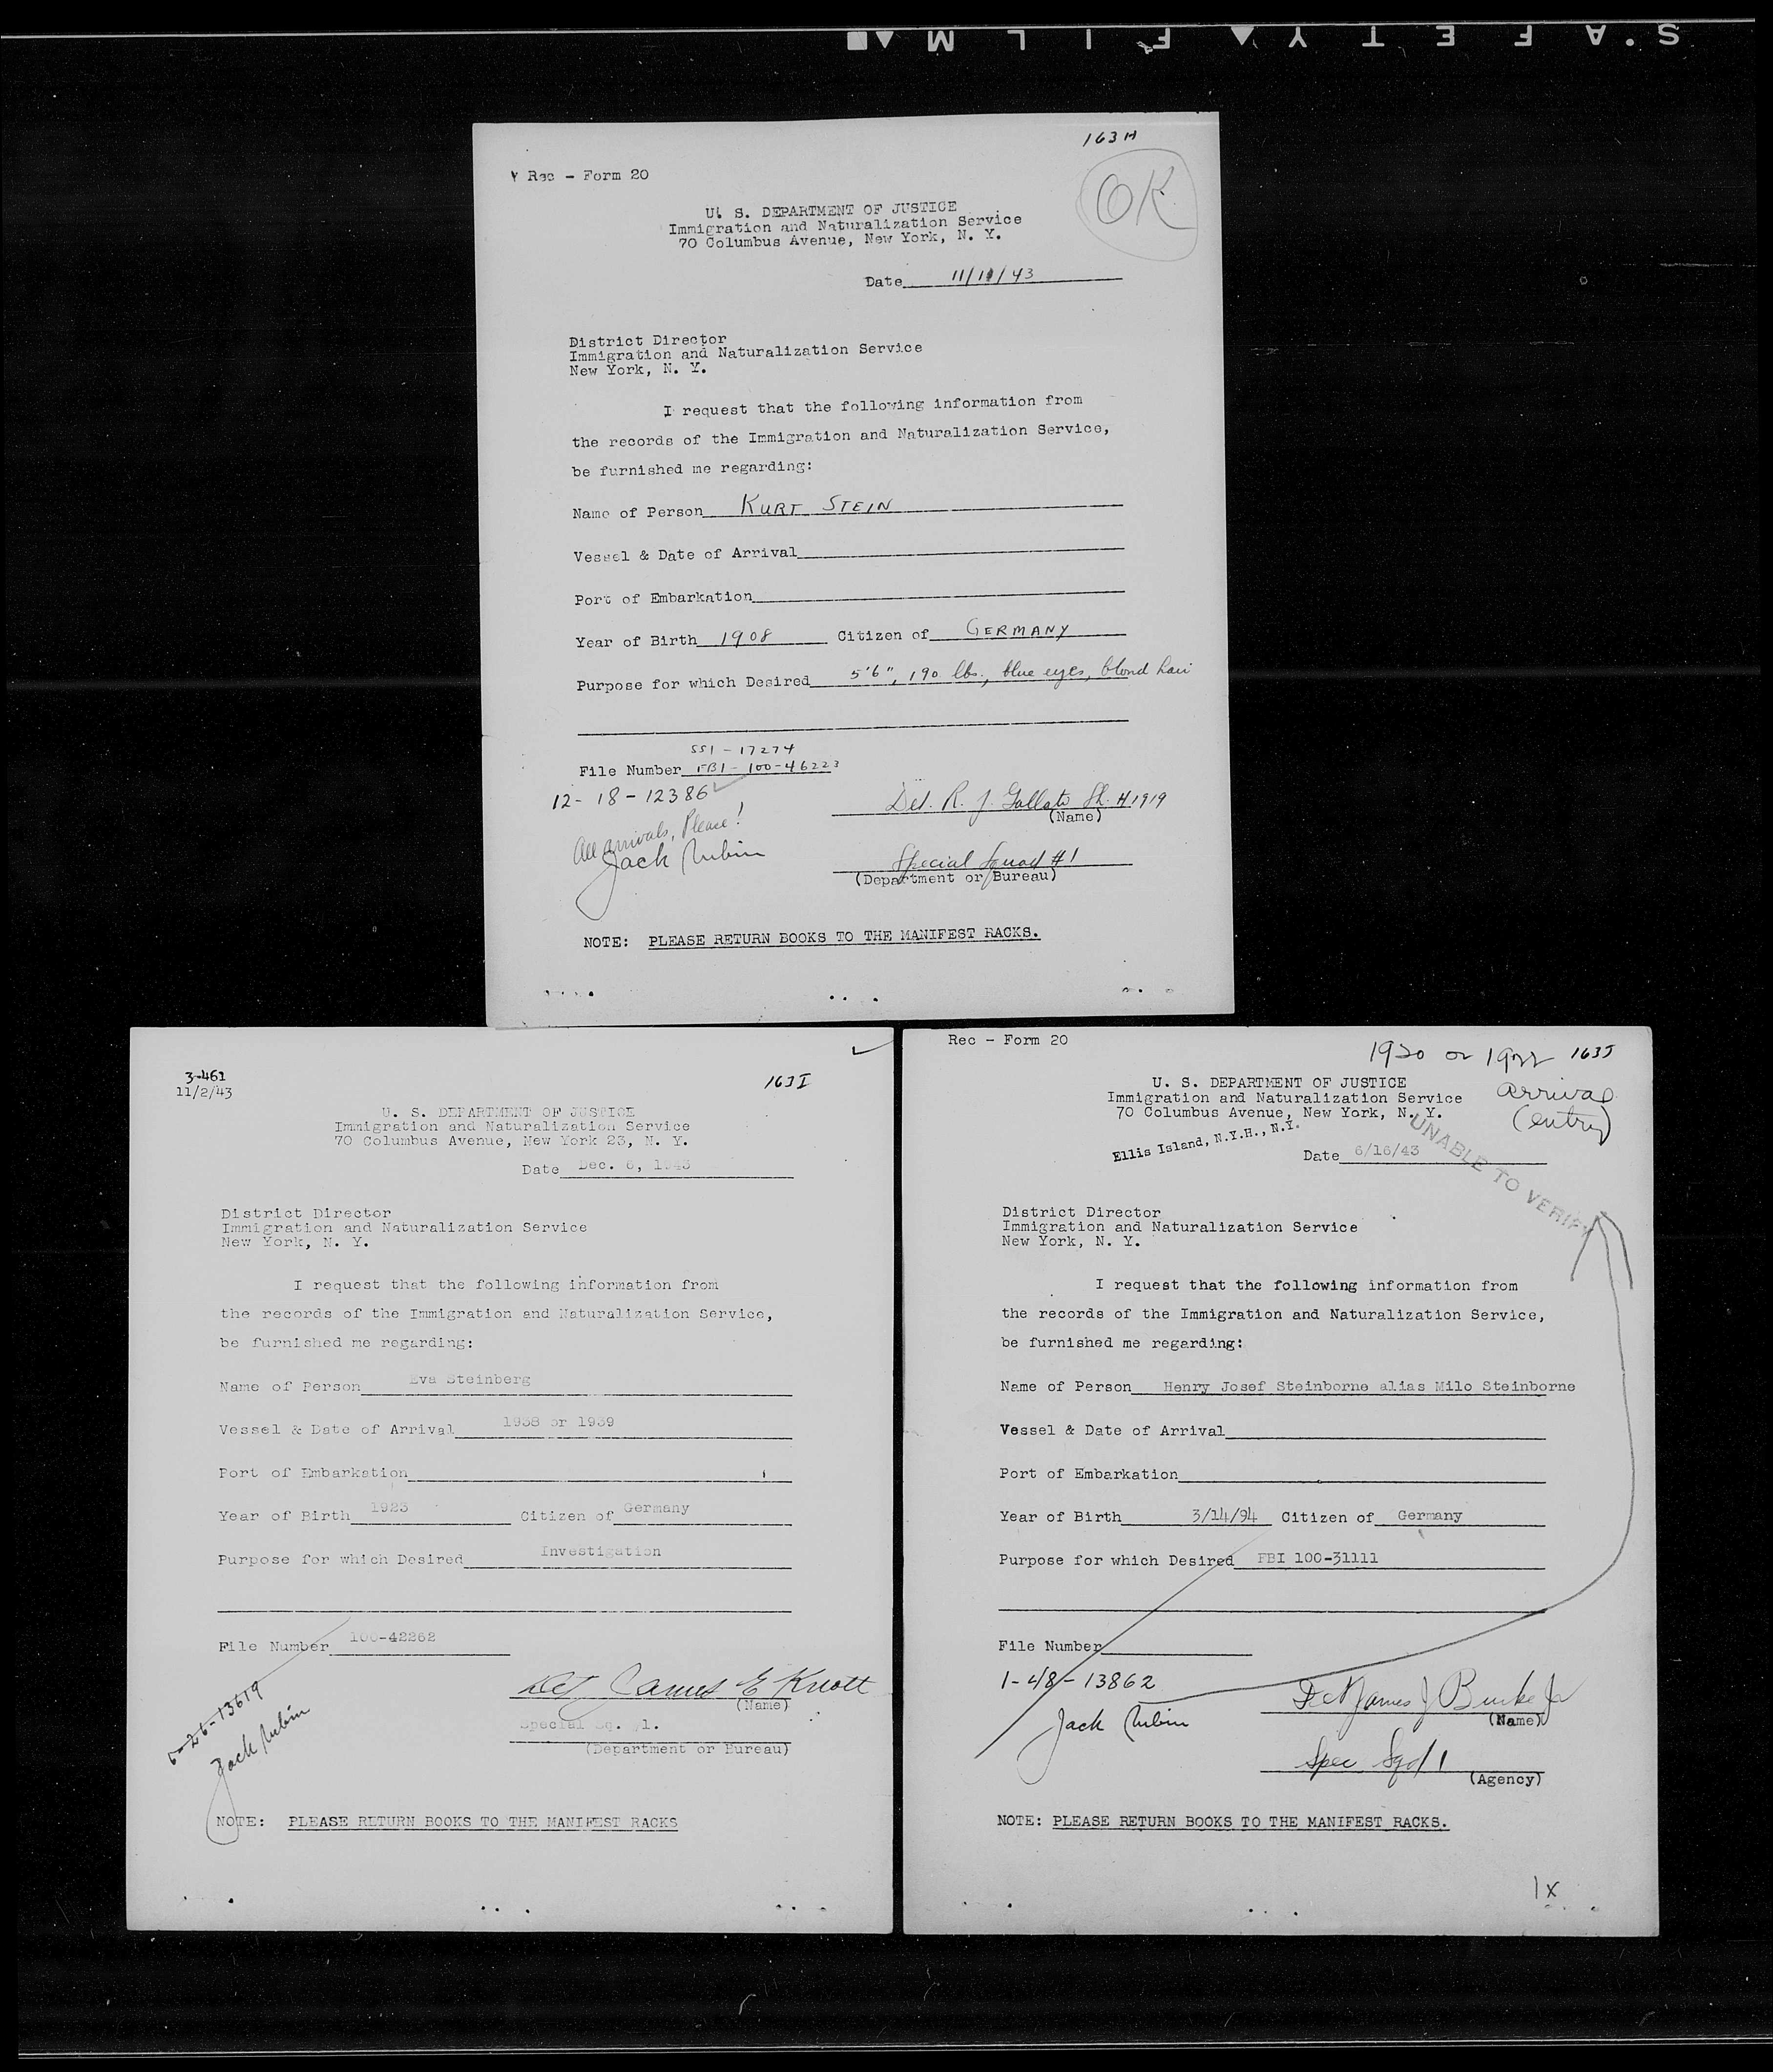 SAFETY FILM
163H
Rec - Form 20
OK
U. S. DEPARTMENT OF JUSTICE
Immigration and Naturalization Service
70 Columbus Avenue, New York, N. Y.
Date 11/11/43
District Director
Immigration and Naturalization Service
New York, N. Y.
I request that the following information from
the records of the Immigration and Naturalization Service,
be furnished me regarding:
Name of Person KURT STEIN
Vessel & Date of Arrival
Port of Embarkation
Year of Birth 1908 Citizen of GERMANY
Purpose for which Desired 5'6", 190 lbs., blue eyes, blond hair
SS1 - 17274
File Number FBI - 100-46223
12- 18-12386
All arrivals, Please!
Jack Rubin
Det. R. J. Sh. #1919
(Name)
Special Squad #1
(Department or Bureau)
NOTE: PLEASE RETURN BOOKS TO THE MANIFEST RACKS.
3-461
11/2/43
163I
U. S. DEPARTMENT OF JUSTICE
Immigration and Naturalization Service
70 Columbus Avenue, New York 23, N. Y.
Date Dec. 6, 1943
District Director
Immigration and Naturalization Service
New York, N. Y.
I request that the following information from
the records of the Immigration and Naturalization Service,
be furnished me regarding:
Name of Person Eva Steinberg
Vessel & Date of Arrival 1938 or 1939
Port of Embarkation
Year of Birth 1923 Citizen of Germany
Purpose for which Desired Investigation
File Number 100-42262
Jack Rubin
Det James E Knott
(Name)
Special Sq. #1.
(Department or Bureau)
NOTE: PLEASE RETURN BOOKS TO THE MANIFEST RACKS
Rec - Form 20
1920 or 1922 163J
arrival
(entry)
U. S. DEPARTMENT OF JUSTICE
Immigration and Naturalization Service
70 Columbus Avenue, New York, N. Y.
Ellis Island, N.Y.H., N.Y.
UNABLE TO VERIFY
Date 6/16/43
District Director
Immigration and Naturalization Service
New York, N. Y.
I request that the following information from
the records of the Immigration and Naturalization Service,
be furnished me regarding:
Name of Person Henry Josef Steinborne alias Milo Steinborne
Vessel & Date of Arrival
Port of Embarkation
Year of Birth 3/14/94 Citizen of Germany
Purpose for which Desired FBI 100-31111
File Number
1-48-13862
Jack Rubin
Det James J Burke Jr
(Name)
Spec Sqd 1
(Agency)
NOTE: PLEASE RETURN BOOKS TO THE MANIFEST RACKS.
1x